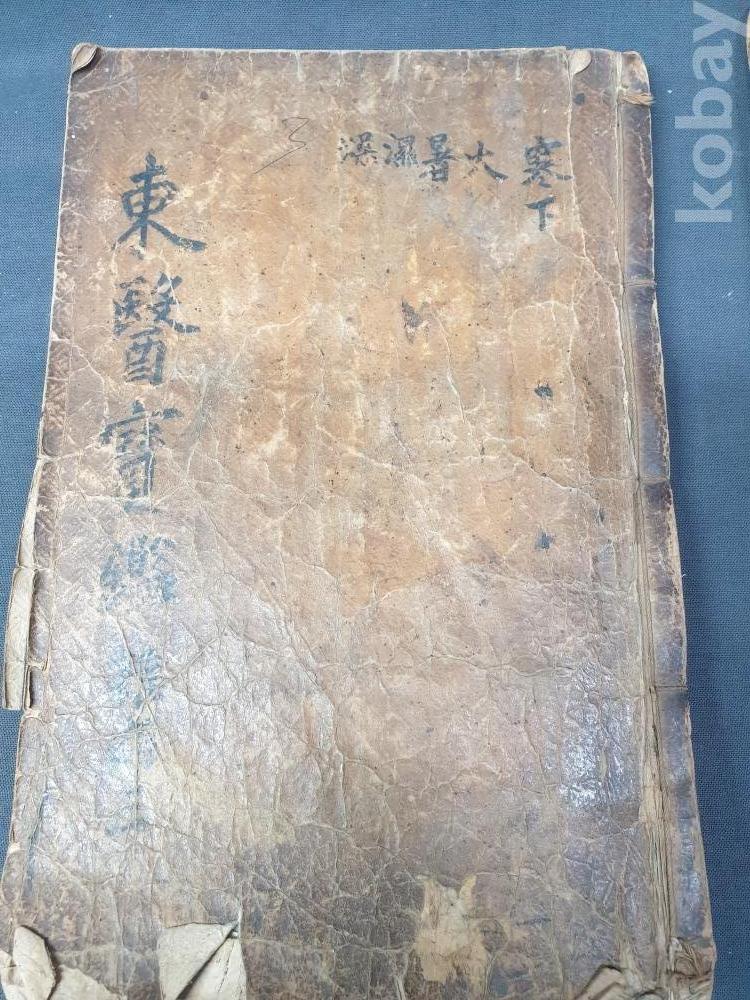 寒下
火暑濕
3
東醫寶鑑 雜
kobay